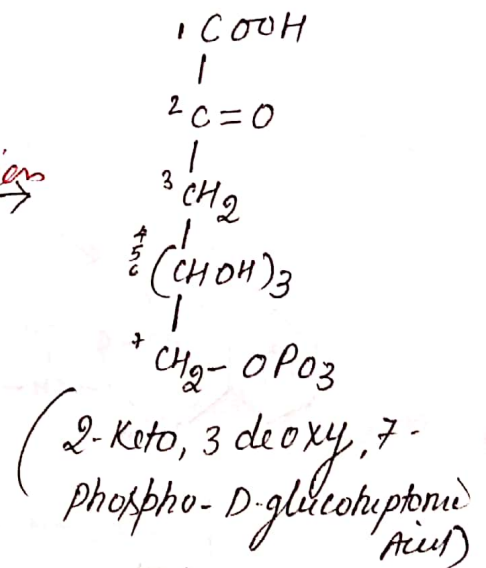 1 COOH
2 C=O
3 CH2
4
5
6 (CHOH)3
7 CH2-OPO3
(2-Keto, 3 deoxy, 7-
Phospho-D-glucoheptonic
Acid)